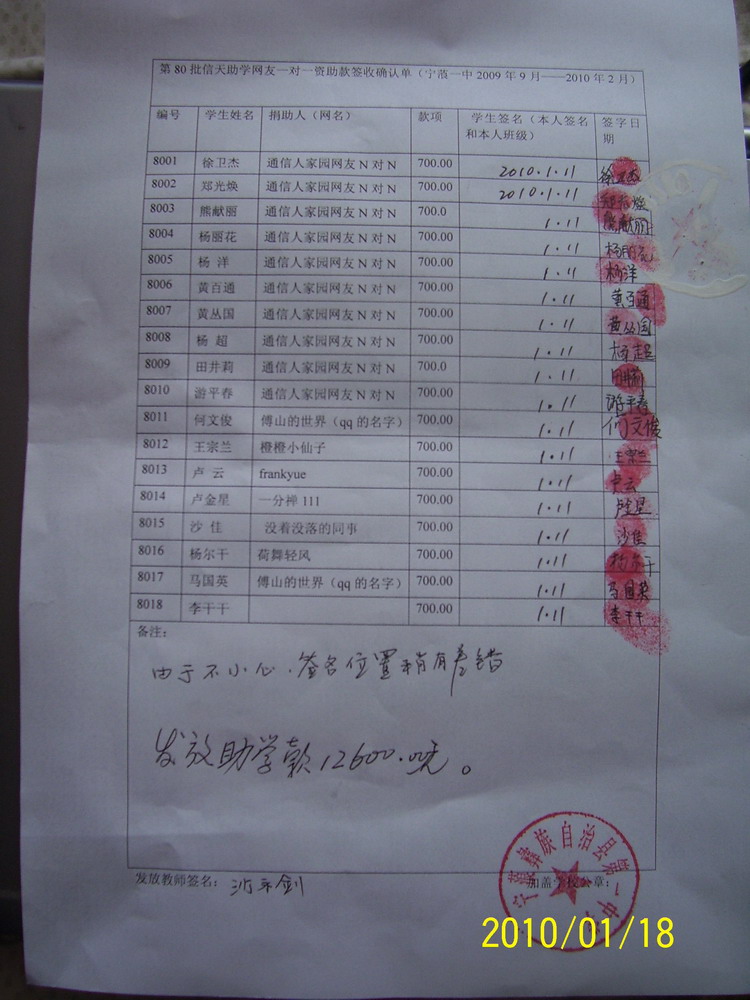 第80批信天助学网友一对一资助款签收确认单（宁蒗一中2009年9月——2010年2月）
编号 学生姓名 捐助人（网名） 款项 学生签名（本人签名和本人班级） 签字日期
8001 徐卫杰 通信人家园网友N对N 700.00 2010.1.11 徐卫杰
8002 郑光焕 通信人家园网友N对N 700.00 2010.1.11 郑光焕
8003 熊献丽 通信人家园网友N对N 700.0 1.11 熊献丽
8004 杨丽花 通信人家园网友N对N 700.00 1.11 杨丽花
8005 杨 洋 通信人家园网友N对N 700.00 1.11 杨洋
8006 黄百通 通信人家园网友N对N 700.00 1.11 黄百通
8007 黄丛国 通信人家园网友N对N 700.00 1.11 黄丛国
8008 杨 超 通信人家园网友N对N 700.00 1.11 杨超
8009 田井莉 通信人家园网友N对N 700.0 1.11 田井莉
8010 游平春 通信人家园网友N对N 700.00 1.11 游平春
8011 何文俊 傅山的世界（qq的名字） 700.00 1.11 何文俊
8012 王宗兰 橙橙小仙子 700.00 1.11 王宗兰
8013 卢 云 frankyue 700.00 1.11 卢云
8014 卢金星 一分禅111 700.00 1.11 卢金星
8015 沙 佳 没着没落的同事 700.00 1.11 沙佳
8016 杨尔干 荷舞轻风 700.00 1.11 杨尔干
8017 马国英 傅山的世界（qq的名字） 700.00 1.11 马国英
8018 李干干 700.00 1.11 李干干
备注：
由于不小心，签名位置稍有差错
发放助学款12600.00元。
发放教师签名：
加盖学校公章：
宁蒗彝族自治县第一中学
2010/01/18